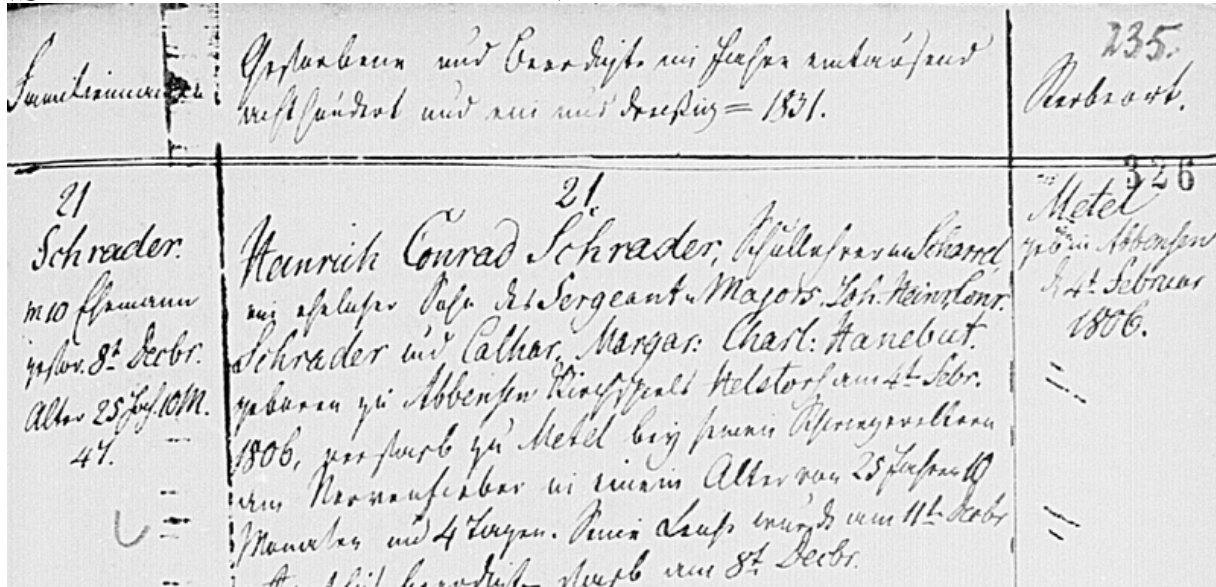 Familiennamen
Gestorbene und Beerdigte im Jahre eintausend
achthundert und ein und dreißig = 1831.
235.
Sterbeort.
326
21
Schrader.
Ehemann
gestor. 8t Decbr.
Alter 25 Jah. 10 M.
4 T.
21.
Heinrich Conrad Schrader, Schullehrer in Scharrel
ein ehelicher Sohn des Sergeant-Majors Joh. Heinr. Conr.
Schrader und Cathar. Margar: Charl: Hanebut.
geboren zu Abbensen Kirchspiels Helstorf am 4t Febr.
1806, verstarb zu Metel bey seinen Schwiegereltern
am Nervenfieber in einem Alter von 25 Jahren 10
Monaten und 4 Tagen. Seine Leiche wurde am 11t Decbr
beerdigt. starb am 8t Decbr.
Metel
geb. in Abbensen
d. 4t Februar
1806.